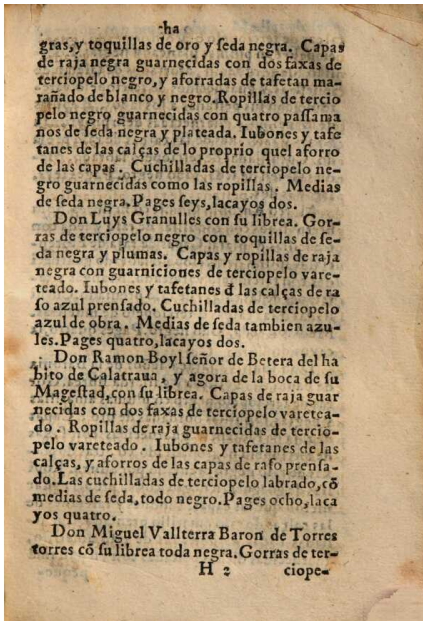 ha
gras, y toquillas de oro y ſeda negra. Capas
de raja negra guarnecidas con dos faxas de
terciopelo negro, y aforradas de tafetan ma-
rañado de blanco y negro. Ropillas de tercio
pelo negro guarnecidas con quatro paſſama
nos de ſeda negra y plateada. Iubones y tafe
tanes de las calças de lo proprio quel aforro
de las capas. Cuchilladas de terciopelo ne-
gro guarnecidas como las ropillas. Medias
de ſeda negra. Pages ſeys, lacayos dos.
Don Luys Granulles con ſu librea. Gor-
ras de terciopelo negro con toquillas de ſe-
da negra y plumas. Capas y ropillas de raja
negra con guarniciones de terciopelo vare-
teado. Iubones y tafetanes đ las calças de ra
ſo azul prenſado. Cuchilladas de terciopelo
azul de obra. Medias de ſeda tambien azu-
les. Pages quatro, lacayos dos.
Don Ramon Boyl ſeñor de Betera del ha
bito de Calatraua, y agora de la boca de ſu
Mageſtad, con ſu librea. Capas de raja guar
necidas con dos faxas de terciopelo varetea-
do. Ropillas de raja guarnecidas de tercio-
pelo vareteado. Iubones y tafetanes de las
calças, y aforros de las capas de raſo prenſa-
do. Las cuchilladas de terciopelo labrado, cõ
medias de ſeda, todo negro. Pages ocho, laca
yos quatro.
Don Miguel Vallterra Baron de Torres
torres cõ ſu librea toda negra. Gorras de ter-
H 2 ciope-